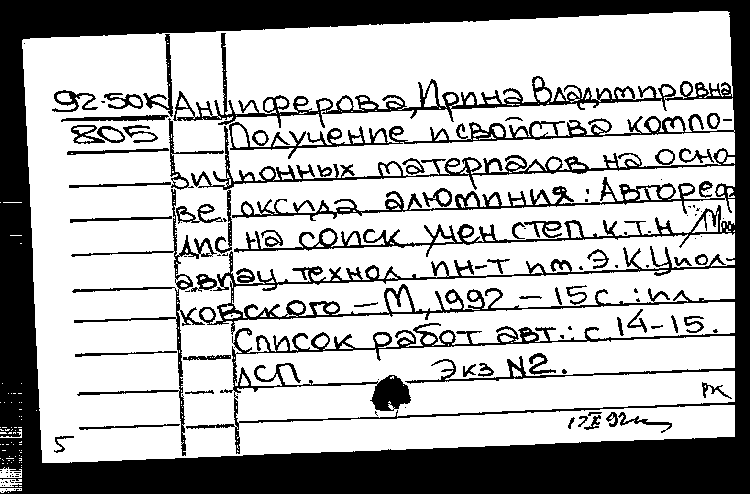 92-50К Анциферова, Ирина Владимировна
805 Получение и свойства компо-
зиционных материалов на осно-
ве оксида алюминия : Автореф
дис на соиск учен. степ. к.т.н / Моск
авиац. технол. ин-т им. Э. К. Циол-
ковского. – М, 1992. – 15 с. : ил.
Список работ авт.: с 14-15.
ДСП. Экз N2.
РК
5